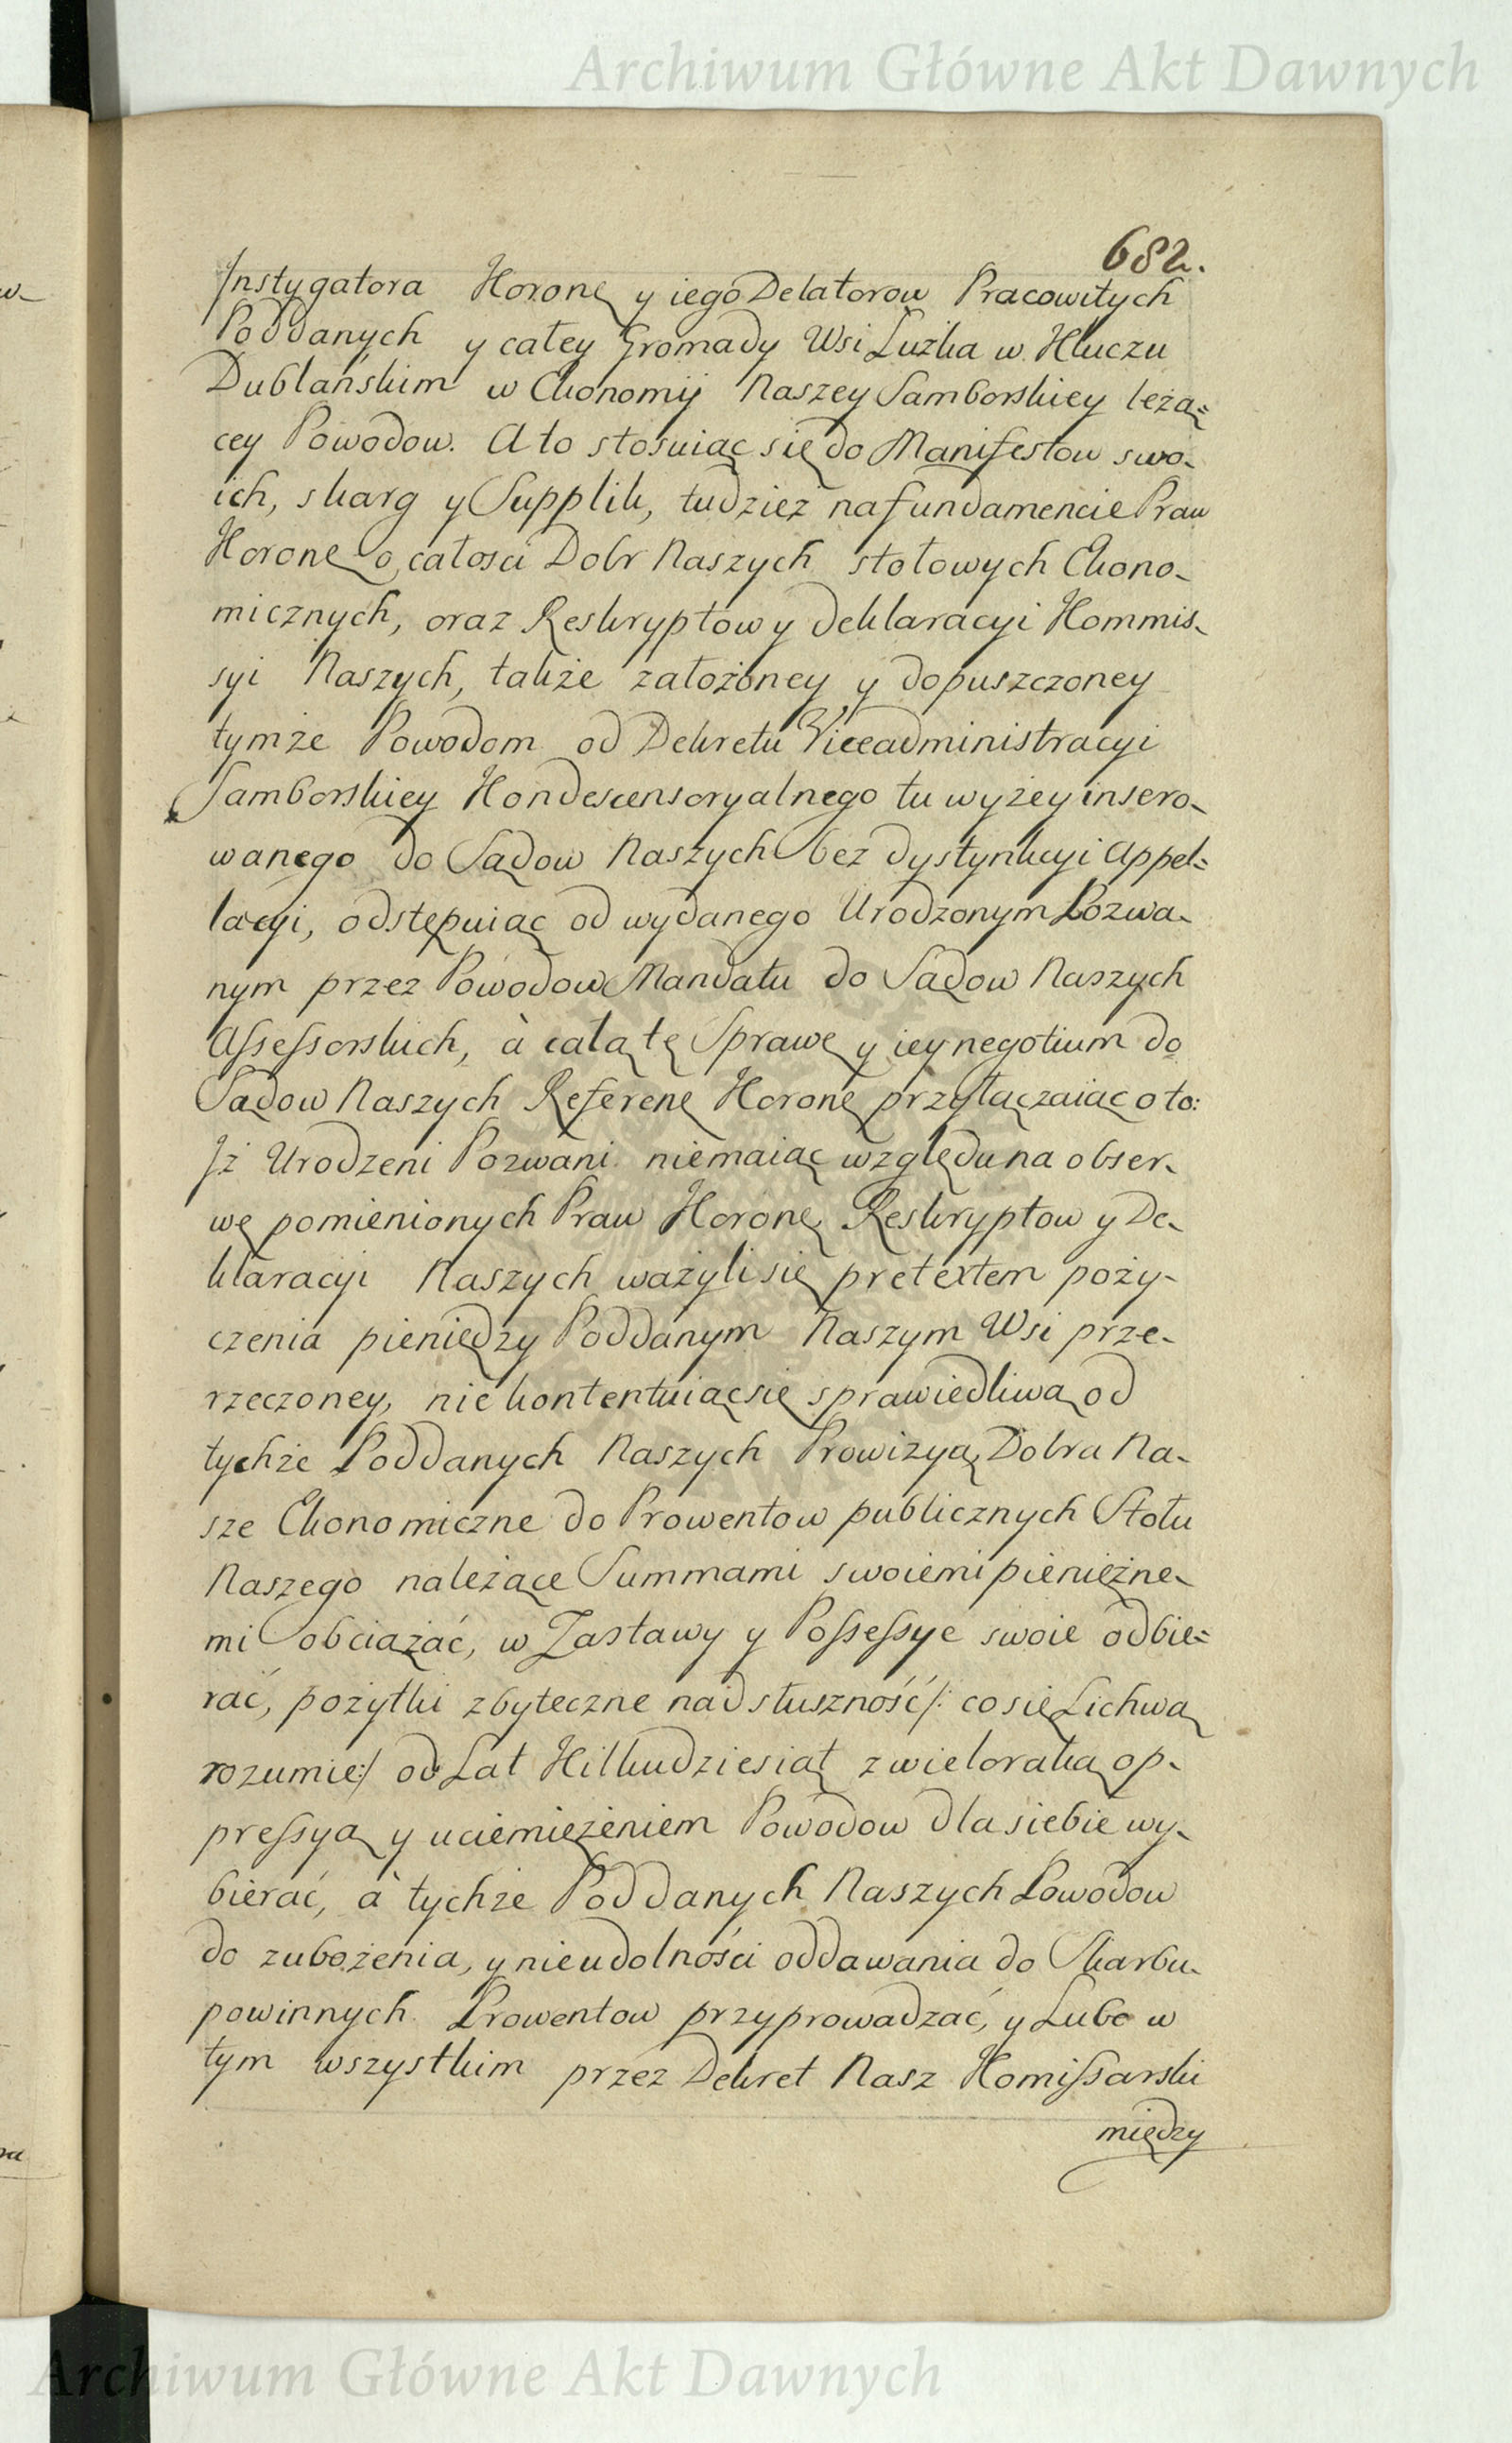 Archiwum Główne Akt Dawnych
682.
Instygatora Koronę y iego Delatorow Pracowitych
Poddanych y całey Gromady Wsi Łużka w Kluczu
Dublańskim w Ekonomij Naszey Samborskiey leżą=
cey Powodow. A to stosuiąc się do Manifestow swo-
ich, skarg y Supplik, tudzież na fundamencie Praw
Koronę o całosci Dobr Naszych stołowych Ekono-
micznych, oraz Reskryptow y Deklaracyi Kommis-
syi Naszych, także założoney y dopuszczoney
tymże Powodom od Dekretu Viceadministracyi
Samborskiey Kondescensoryalnego tu wyżey insero-
wanego do Sądow Naszych bez dystynkcyi Appel=
lacyi, odstępuiąc od wydanego Urodzonym Pozwa-
nym przez Powodow Mandatu do Sądow Naszych
Assessorskich, à całą tę Sprawę y iey negotium do
Sądow Naszych Referenę Koronę przyłączaiąc o to:
Iż Urodzeni Pozwani niemaiąc względu na obser-
wę pomienionych Praw Koronę, Reskryptow y De-
klaracyi Naszych ważyli się pretextem poży-
czenia pieniędzy Poddanym Naszym Wsi prze-
rzeczoney, nie kontentuiąc się sprawiedliwą od
tychże Poddanych Naszych Prowizyą, Dobra Na-
sze Ekonomiczne do Prowentow publicznych Stołu
Naszego należące Summami swoiemi pieniężne-
mi obciążać, w Zastawy y Possessye swoie odbie=
rać, pożytki zbyteczne nad słuszność /: co się Lichwą
rozumie:/ od Lat Kilkudziesiąt z wieloraką op-
pressyą y uciemiężeniem Powodow dla siebie wy-
bierać, à tychże Poddanych Naszych Powodow
do zubożenia, y nieudolności oddawania do Skarbu
powinnych Prowentow przyprowadzać, y Lubo w
tym wszystkim przez Dekret Nasz Komissarski
między
Archiwum Główne Akt Dawnych